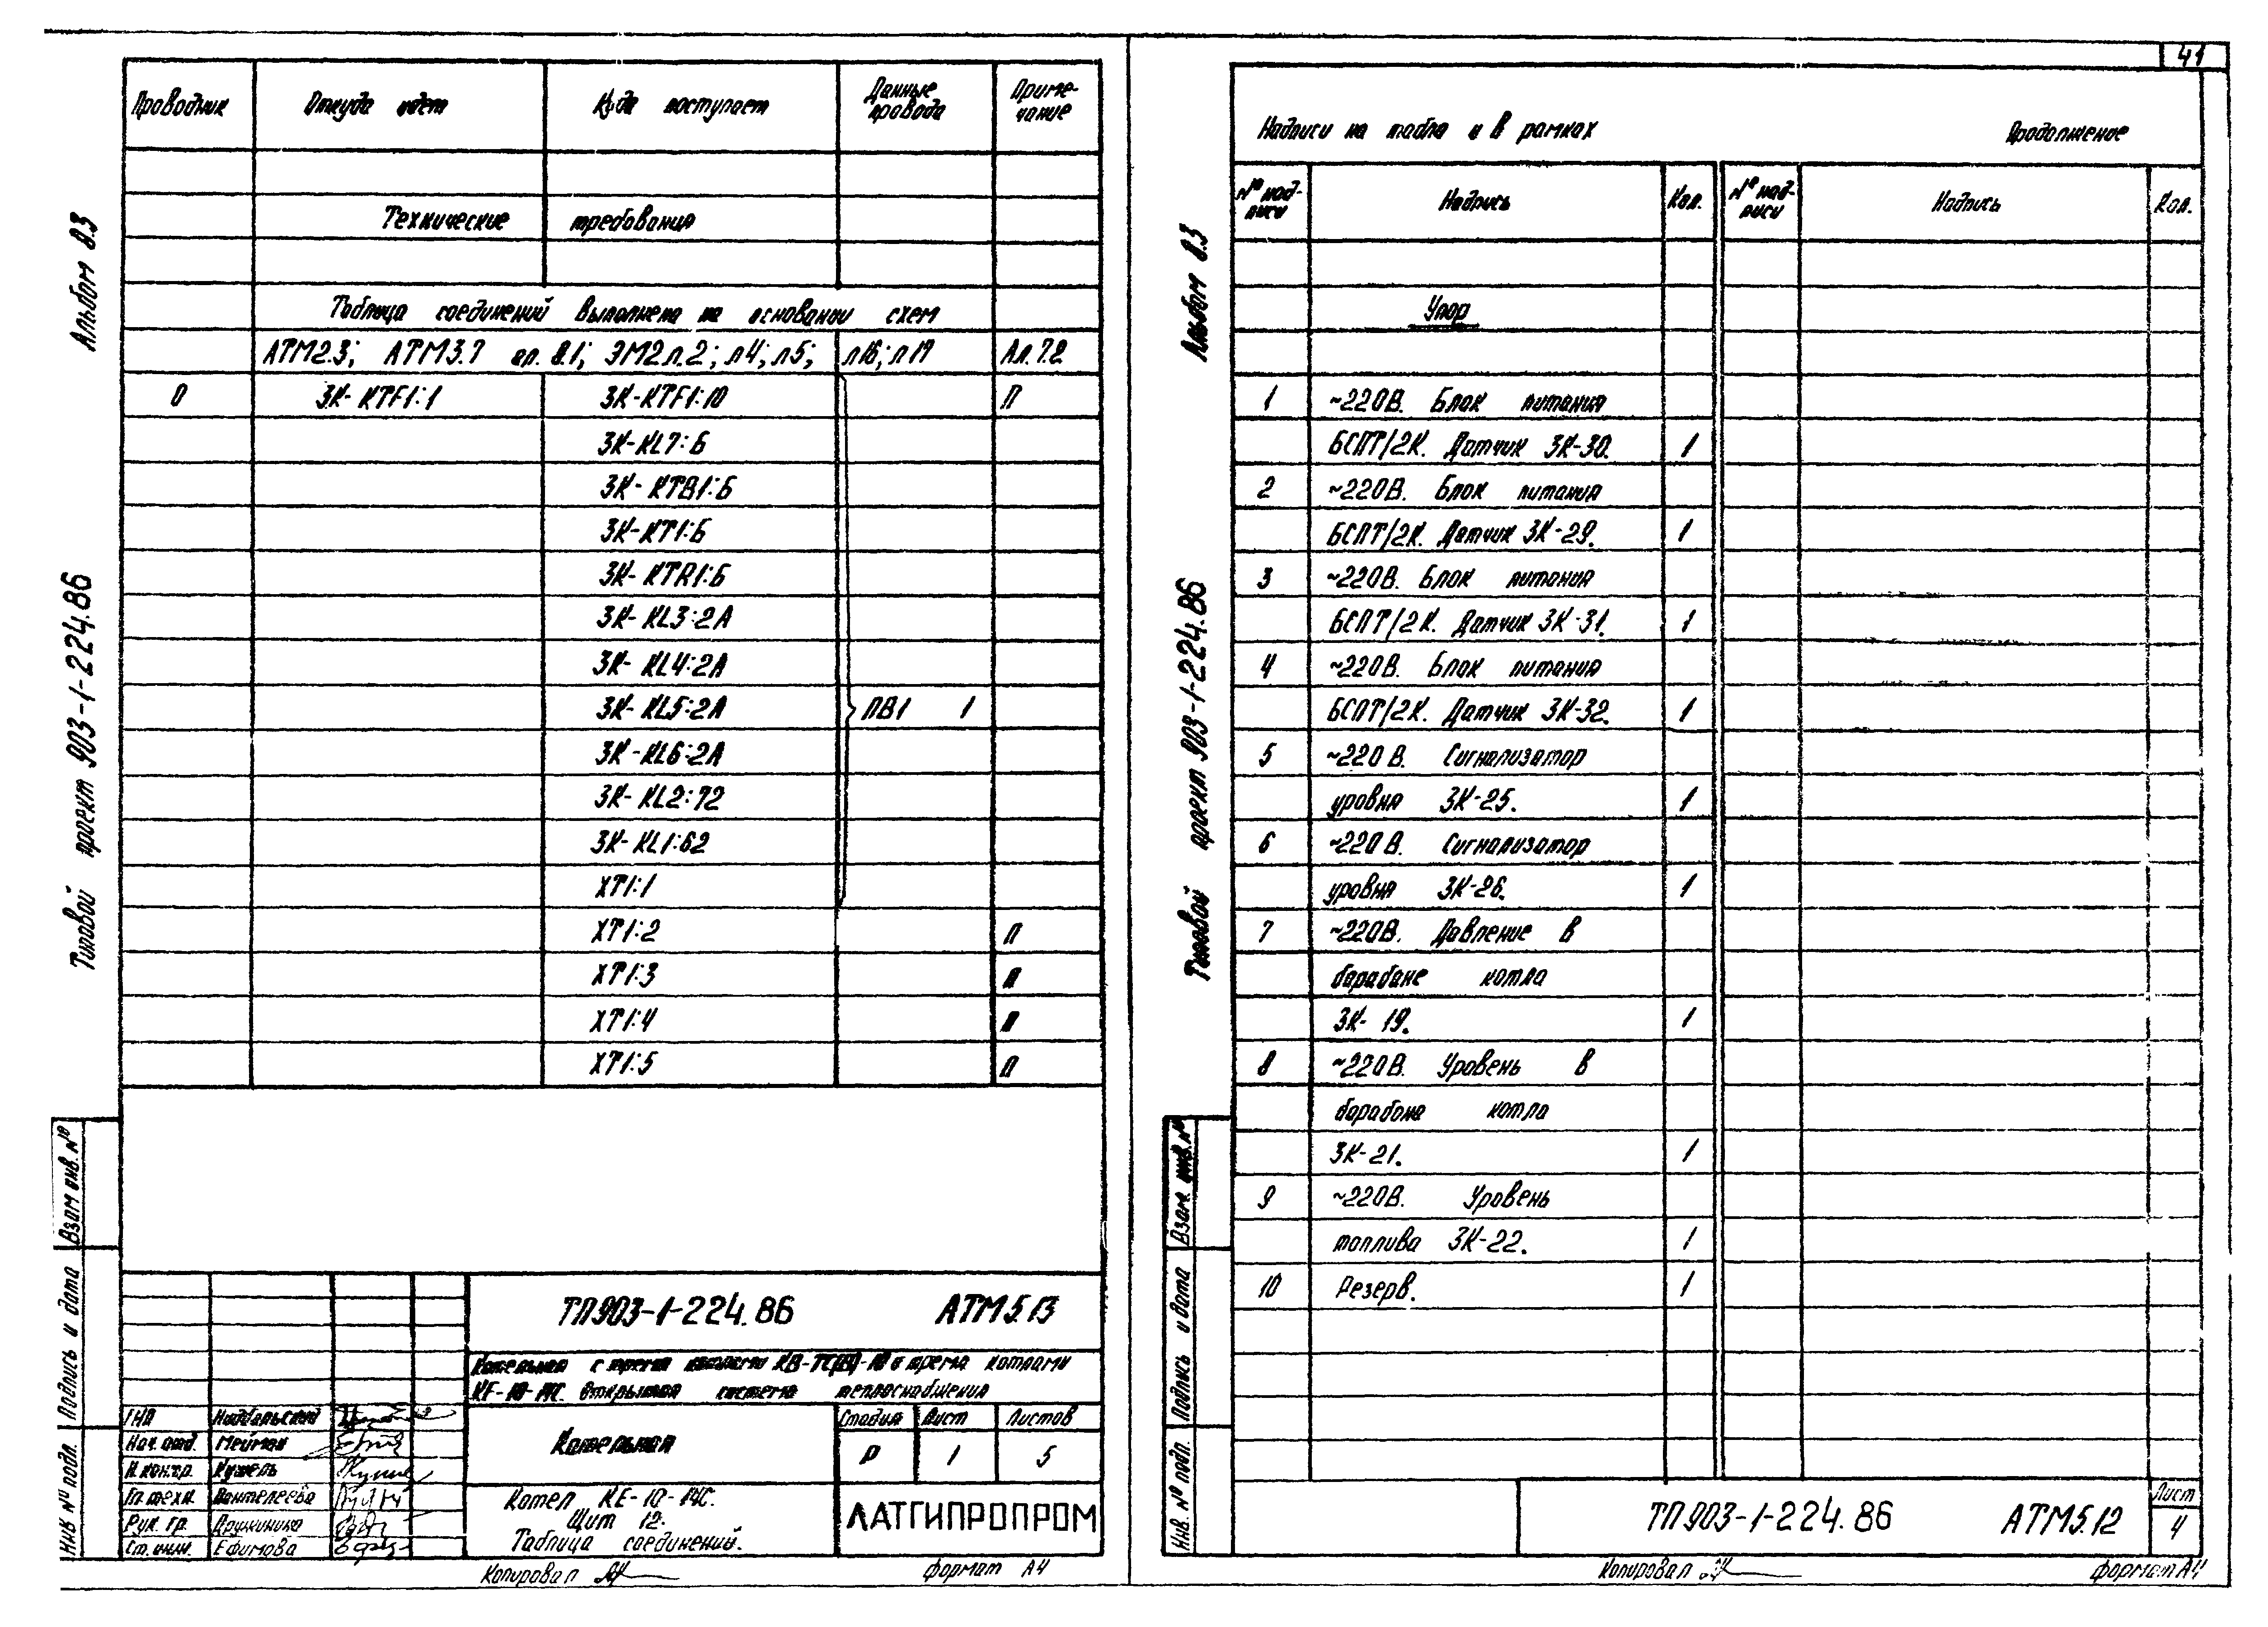 41
Альбом 8.3
Типовой проект 903-1-224.86
Взам инв. №
Подпись и дата
Инв № подл.
Проводник Откуда идет Куда поступает Данные провода Примечание
Технические требования
Таблица соединений выполнена на основании схем
АТМ2.3; АТМ3.7 ал. 8.1; ЭМ2 л.2; л4; л5; л16; л17 Ал. 7.2
0 3К-КТF1:1 3К-КТF1:10 П
3К-KL7:Б
3К-КТВ1:Б
3К-КТ1:Б
3К-КТR1:Б
3К-KL3:2А
3К-KL4:2А
3К-KL5:2А ПВ1 1
3К-KL6:2А
3К-KL2:72
3К-KL1:62
ХТ1:1
ХТ1:2 П
ХТ1:3 П
ХТ1:4 П
ХТ1:5 П
ТП903-1-224.86 АТМ5.13
Котельная с тремя котлами КВ-ТС(В)-10 и тремя котлами
КЕ-10-14С. Открытая система теплоснабжения
ГИП
Нач. отд. Мейман
Н. контр. Кужель
Гл. техн. Пантелеева
Рук. гр. Дружинина
Ст. инж. Ефимова
Котельная
Стадия Лист Листов
Р 1 5
Котел КЕ-10-14С.
Щит 12.
Таблица соединений.
ЛАТГИПРОПРОМ
Копировал
Формат А4
Альбом 8.3
Типовой проект 903-1-224.86
Взам. инв. №
Подпись и дата
Инв. № подл.
Надписи на табло и в рамках Продолжение
№ надписи Надпись Кол. № надписи Надпись Кол.
Упор
1 ~220В. Блок питания
БСПТ/2К. Датчик 3К-30. 1
2 ~220В. Блок питания
БСПТ/2К. Датчик 3К-29. 1
3 ~220В. Блок питания
БСПТ/2К. Датчик 3К-31. 1
4 ~220В. Блок питания
БСПТ/2К. Датчик 3К-32. 1
5 ~220 В. Сигнализатор
уровня 3К-25. 1
6 ~220 В. Сигнализатор
уровня 3К-26. 1
7 ~220В. Давление в
барабане котла
3К-19. 1
8 ~220В. Уровень в
барабане котла
3К-21. 1
9 ~220В. Уровень
топлива 3К-22. 1
10 Резерв. 1
ТП903-1-224.86 АТМ5.12
Лист
4
Копировал
Формат А4